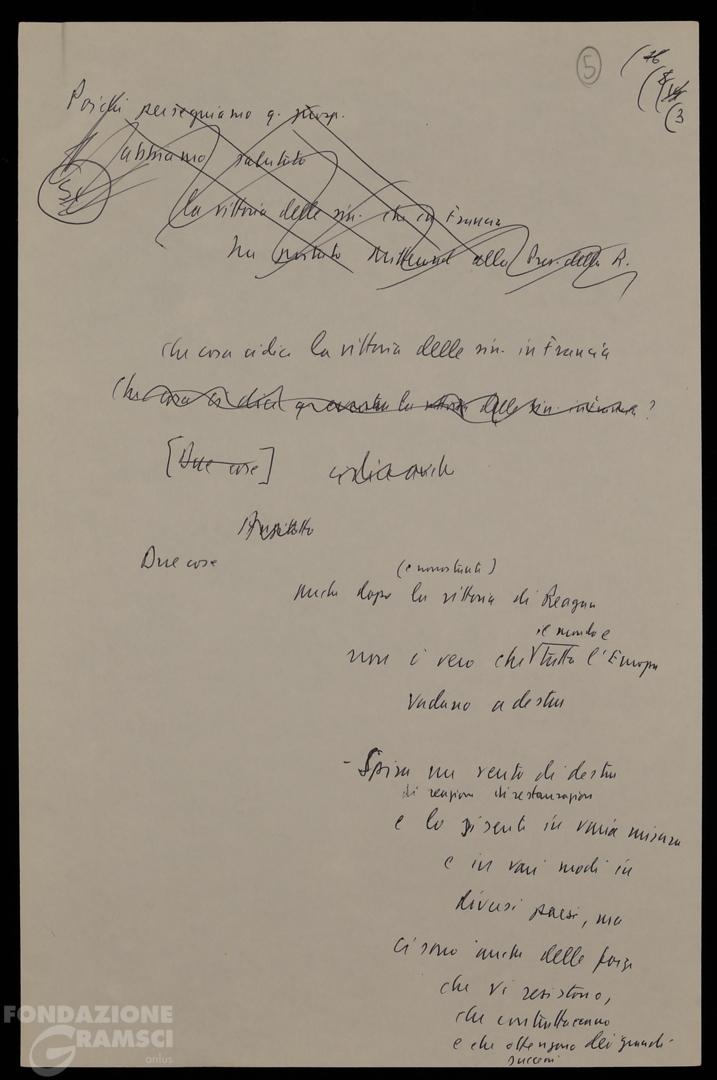 5
Poiché perseguiamo q.
abbiamo salutato
la vittoria delle sin. che in Francia
ha portato Mitterand alla Pres. della R.
che cosa ci dice la vittoria delle sin. in Francia
Che cosa ci dice la vittoria delle sin. in Francia?
[Due cose]
Anzitutto
Due cose
(e nonostante)
Anche dopo la vittoria di Reagan
il mondo e
non è vero che tutta l'Europa
vadano a destra
- Spira un vento di destra
di reazione di restaurazione
e lo si sente in varia misura
e in vari modi in
diversi paesi, ma
ci sono anche delle forze
che vi resistono,
che contrattaccano
e che ottengono dei grandi
successi
FONDAZIONE
GRAMSCI
onlus